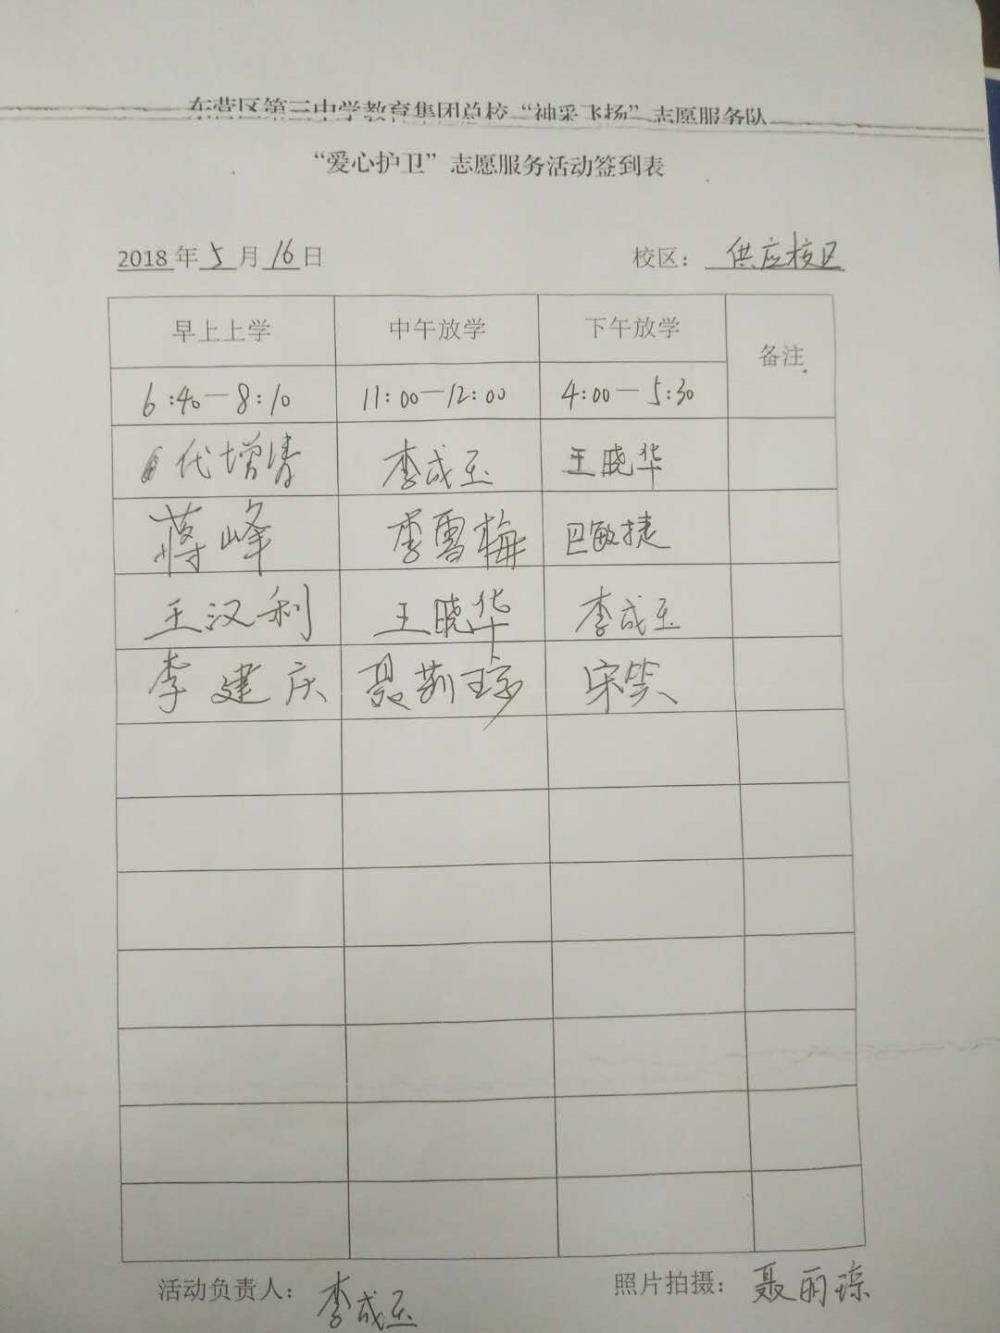 东营区第三中学教育集团总校“神采飞扬”志愿服务队
“爱心护卫”志愿服务活动签到表
2018年5月16日 校区：供应校区
早上上学 中午放学 下午放学 备注
6:40—8:10 11:00—12:00 4:00—5:30
代增清 李成玉 王晓华
蒋峰 李雪梅 巴敏捷
王汉利 王晓华 李成玉
李建庆 聂莉琼 宋笑
活动负责人：李成玉 照片拍摄：聂丽琼